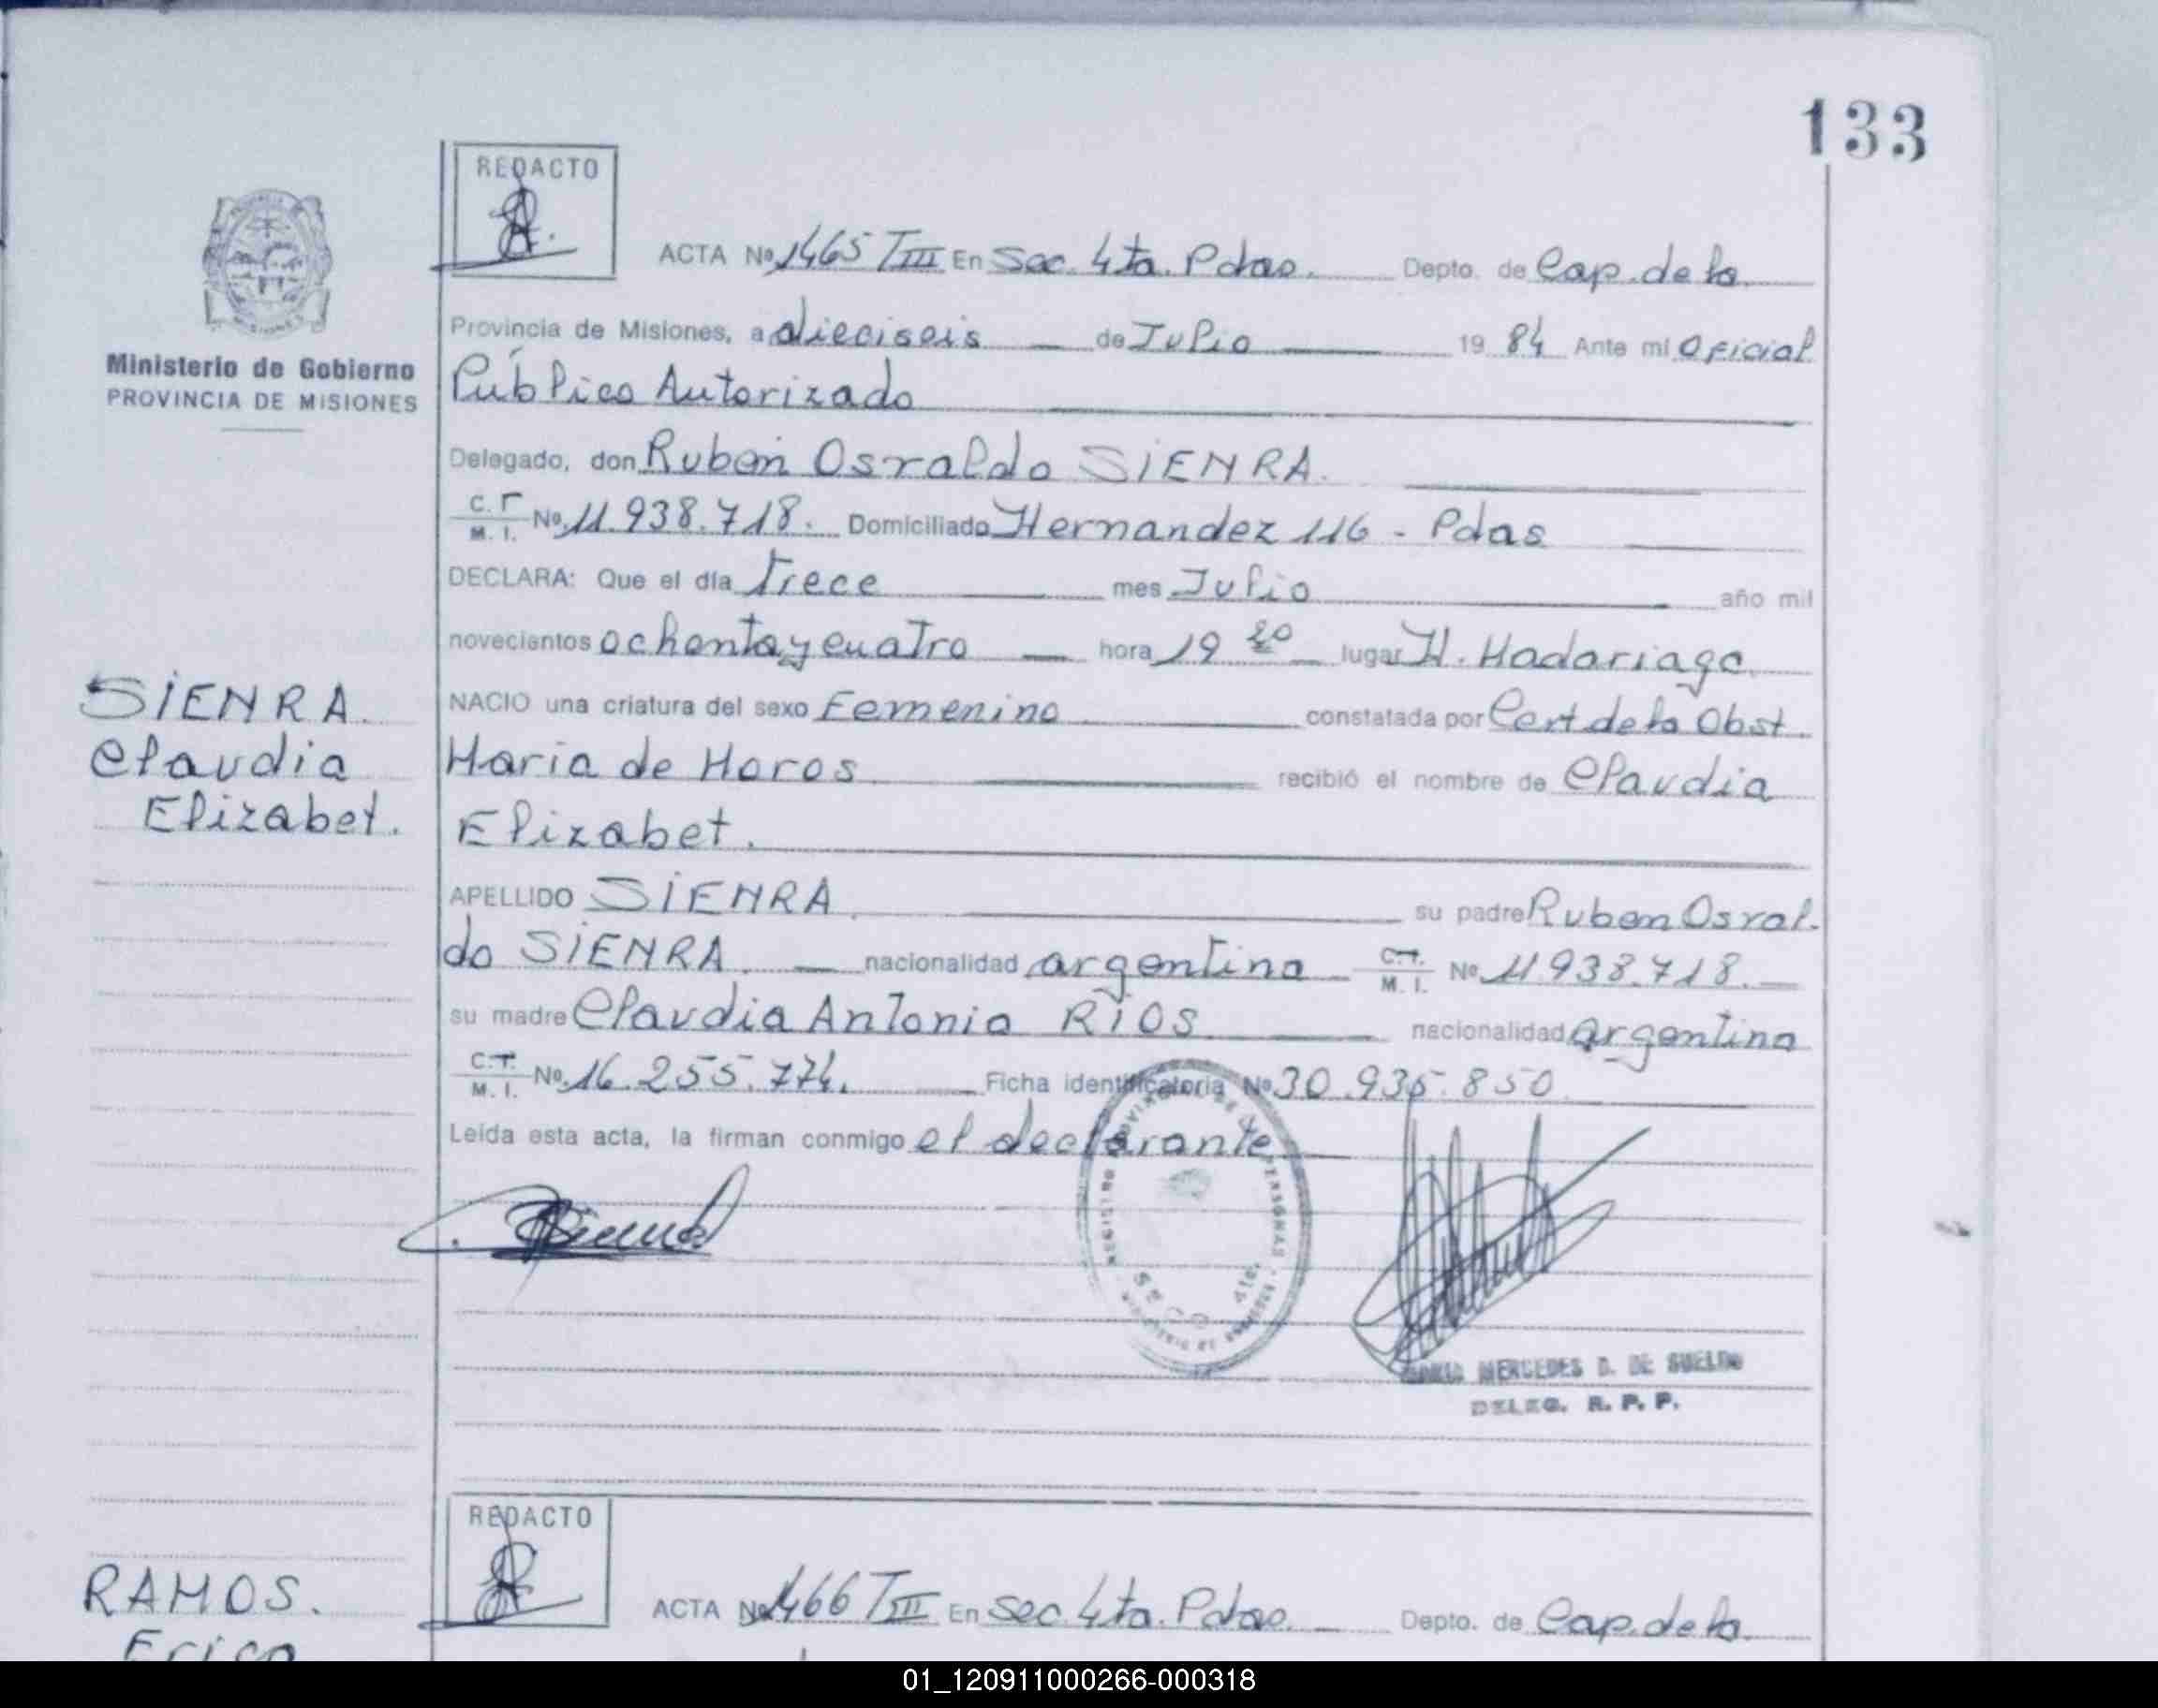 133
REDACTO
ACTA Nº 1465 TIII En Sec. 4ta. Pdas. Depto. de Cap. de la
Provincia de Misiones, a dieciseis de Julio 19 84 Ante mi Oficial
Ministerio de Gobierno
PROVINCIA DE MISIONES
Público Autorizado
Delegado, don Ruben Osvaldo SIENRA.
C. I. M. I. Nº 11.938.718. Domiciliado Hernandez 116 - Pdas
DECLARA: Que el día Trece mes Julio año mil
novecientos ochenta y cuatro hora 19 20 lugar H. Madariaga
SIENRA.
Claudia
Elizabet.
NACIO una criatura del sexo Femenino constatada por Cert de la Obst.
Maria de Moros recibió el nombre de Claudia
Elizabet.
APELLIDO SIENRA su padre Ruben Osval-
do SIENRA. nacionalidad argentina C.I. M. I. Nº 11938.718.
su madre Claudia Antonia RIOS nacionalidad argentina
C.I. M. I. Nº 16.255.774. Ficha identificatoria Nº 30.935.850
Leída esta acta, la firman conmigo el declarante
SECC 4ta.
MARIA MERCEDES D. DE SUELDO
DELEG. R. P. P.
REDACTO
RAMOS.
Erica
ACTA Nº 1466 TIII En Sec. 4ta. Pdas. Depto. de Cap. de la
01_120911000266-000318